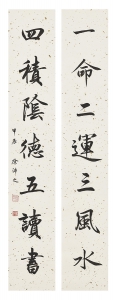 一命二運三風水
四積陰德五讀書